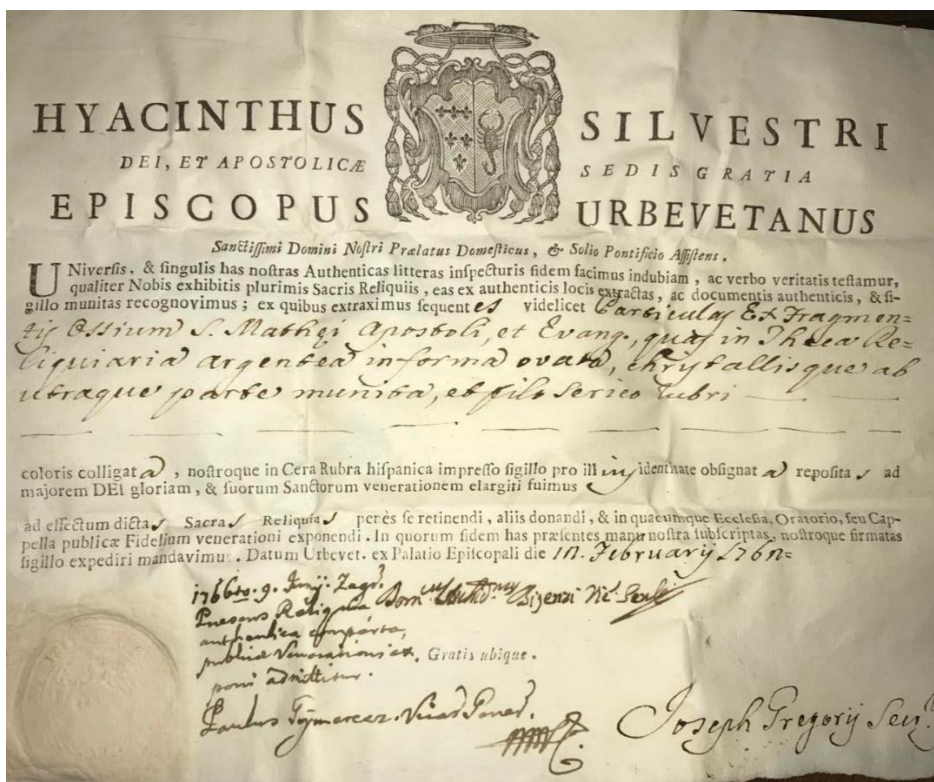 HYACINTHUS SILVESTRI
DEI, ET APOSTOLICÆ SEDIS GRATIA
EPISCOPUS URBEVETANUS
Sanctissimi Domini Nostri Prælatus Domesticus, & Solio Pontificio Assistens.
UNiversis, & singulis has nostras Authenticas litteras inspecturis fidem facimus indubiam, ac verbo veritatis testamur,
qualiter Nobis exhibitis plurimis Sacris Reliquiis, eas ex authenticis locis extractas, ac documentis authenticis, & si-
gillo munitas recognovimus; ex quibus extraximus sequentes videlicet Particulas Ex Fragmen=
tis Ossium S. Matthęi Apostoli, et Evang., quas in Theca Re=
liquiaria argentea in forma ovata, chrystallisque ab
utraque parte munita, et filo serico rubri
coloris colligata, nostroque in Cera Rubra hispanica impresso sigillo pro ill identitate obsignata reposita s ad
majorem DEI gloriam, & suorum Sanctorum venerationem elargiti fuimus
ad effectum dictas Sacras Reliquias penès se retinendi, aliis donandi, & in quacumque Ecclesia, Oratorio, seu Cap-
pella publicæ Fidelium venerationi exponendi. In quorum fidem has præsentes manu nostra subscriptas, nostroque firmatas
sigillo expediri mandavimus. Datum Urbevet. ex Palatio Episcopali die Februarij
1766 9. Junij. Zagr.
Praesens Reliquia
authentica comperta,
publicæ Venerationi ex
poni admittitur. Gratis ubique.
Paulus
Joseph Gregorij